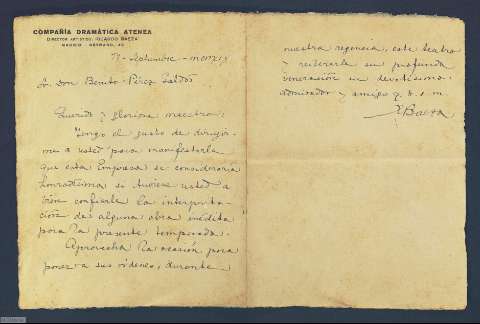 COMPAÑÍA DRAMÁTICA ATENEA
DIRECTOR ARTÍSTICO, RICARDO BAEZA
MADRID - SERRANO,
Setiembre - MCMXIX
Sr. Don Benito Pérez Galdós
Querido y glorioso maestro:
Tengo el gusto de dirigir-
me a usted para manifestarle
que esta Empresa se consideraría
honradísima si tuviese usted a
bien confiarle la interpreta-
ción de alguna obra inédita
para la presente temporada.
Aprovecha la ocasión para
poner a sus órdenes, durante
nuestra regencia, este teatro
y reiterarle su profunda
veneración su devotísimo
admirador y amigo q. b. s. m.
RBaeza